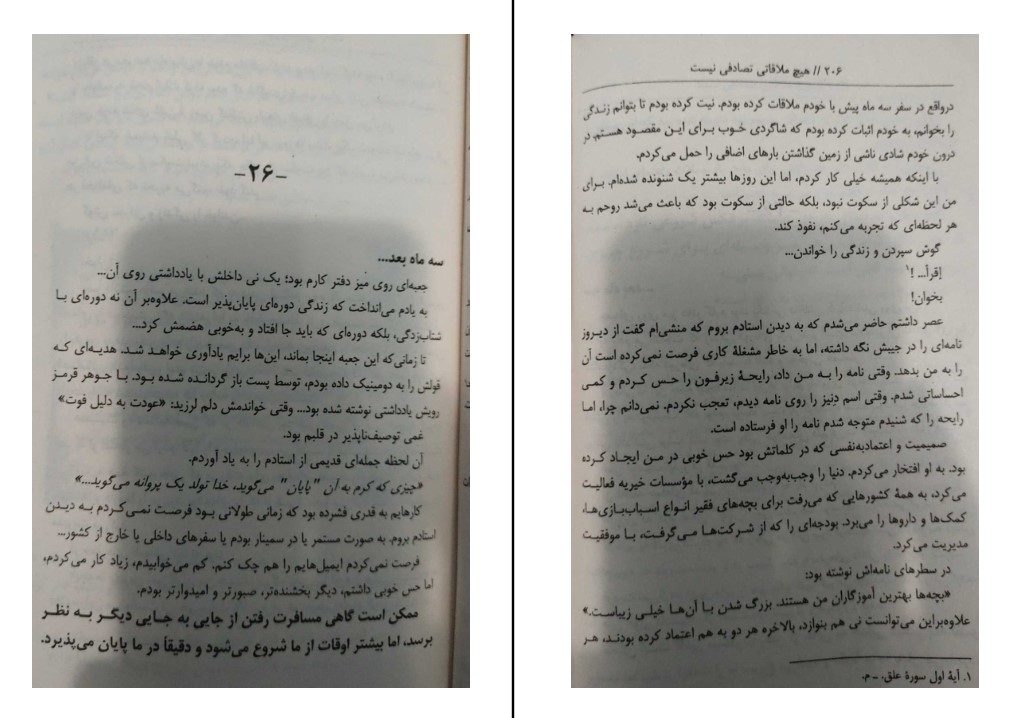 -۲۶-
سه ماه بعد...
جعبه‌ای روی میز دفتر کارم بود؛ یک نی داخلش با یادداشتی روی آن...
به یادم می‌انداخت که زندگی دوره‌ای پایان‌پذیر است. علاوه‌بر آن نه دوره‌ای با
شتاب‌زدگی، بلکه دوره‌ای که باید جا افتاد و به‌خوبی هضمش کرد...
تا زمانی‌که این جعبه اینجا بماند، این‌ها برایم یادآوری خواهد شد. هدیه‌ای که
قولش را به دومینیک داده بودم، توسط پست باز گردانده شده بود. با جوهر قرمز
رویش یادداشتی نوشته شده بود... وقتی خواندمش دلم لرزید: «عودت به دلیل فوت»
غمی توصیف‌ناپذیر در قلبم بود.
آن لحظه جمله‌ای قدیمی از استادم را به یاد آوردم.
«چیزی که کرم به آن "پایان" می‌گوید، خدا تولد یک پروانه می‌گوید...»
کارهایم به قدری فشرده بود که زمانی طولانی بود فرصت نمی‌کردم به دیدن
استادم بروم. به صورت مستمر یا در سمینار بودم یا سفرهای داخلی یا خارج از کشور...
فرصت نمی‌کردم ایمیل‌هایم را هم چک کنم. کم می‌خوابیدم، زیاد کار می‌کردم،
اما حس خوبی داشتم، دیگر بخشنده‌تر، صبورتر و امیدوارتر بودم.
ممکن است گاهی مسافرت رفتن از جایی به جایی دیگر به نظر
برسد، اما بیشتر اوقات از ما شروع می‌شود و دقیقاً در ما پایان می‌پذیرد.
۲۰۶ // هیچ ملاقاتی تصادفی نیست
درواقع در سفر سه ماه پیش با خودم ملاقات کرده بودم. نیت کرده بودم تا بتوانم زندگی
را بخوانم، به خودم اثبات کرده بودم که شاگردی خوب برای این مقصود هستم. در
درون خودم شادی ناشی از زمین گذاشتن بارهای اضافی را حمل می‌کردم.
با اینکه همیشه خیلی کار کردم، اما این روزها بیشتر یک شنونده شده‌ام. برای
من این شکلی از سکوت نبود، بلکه حالتی از سکوت بود که باعث می‌شد روحم به
هر لحظه‌ای که تجربه می‌کنم، نفوذ کند.
گوش سپردن و زندگی را خواندن...
إقرأ... !۱
بخوان!
عصر داشتم حاضر می‌شدم که به دیدن استادم بروم که منشی‌ام گفت از دیروز
نامه‌ای را در جیبش نگه داشته، اما به خاطر مشغلهٔ کاری فرصت نمی‌کرده است آن
را به من بدهد. وقتی نامه را به من داد، رایحهٔ زیرفون را حس کردم و کمی
احساساتی شدم. وقتی اسم دِنیز را روی نامه دیدم، تعجب نکردم. نمی‌دانم چرا، اما
رایحه را که شنیدم متوجه شدم نامه را او فرستاده است.
صمیمیت و اعتمادبه‌نفسی که در کلماتش بود حس خوبی در من ایجاد کرده
بود. به او افتخار می‌کردم. دنیا را وجب‌به‌وجب می‌گشت، با مؤسسات خیریه فعالیت
می‌کرد، به همهٔ کشورهایی که می‌رفت برای بچه‌های فقیر انواع اسباب‌بازی‌ها،
کمک‌ها و داروها را می‌برد. بودجه‌ای را که از شرکت‌ها می‌گرفت، با موفقیت
مدیریت می‌کرد.
در سطرهای نامه‌اش نوشته بود:
«بچه‌ها بهترین آموزگاران من هستند. بزرگ شدن با آن‌ها خیلی زیباست.»
علاوه‌براین می‌توانست نی هم بنوازد، بالاخره هر دو به هم اعتماد کرده بودند، هر
۱. آیهٔ اول سورهٔ علق. ـ م.